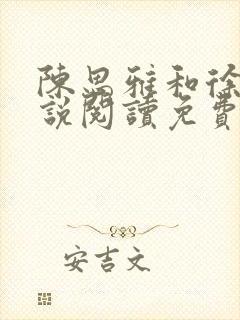 陳思雅和徐
說閱讀免費
安吉文